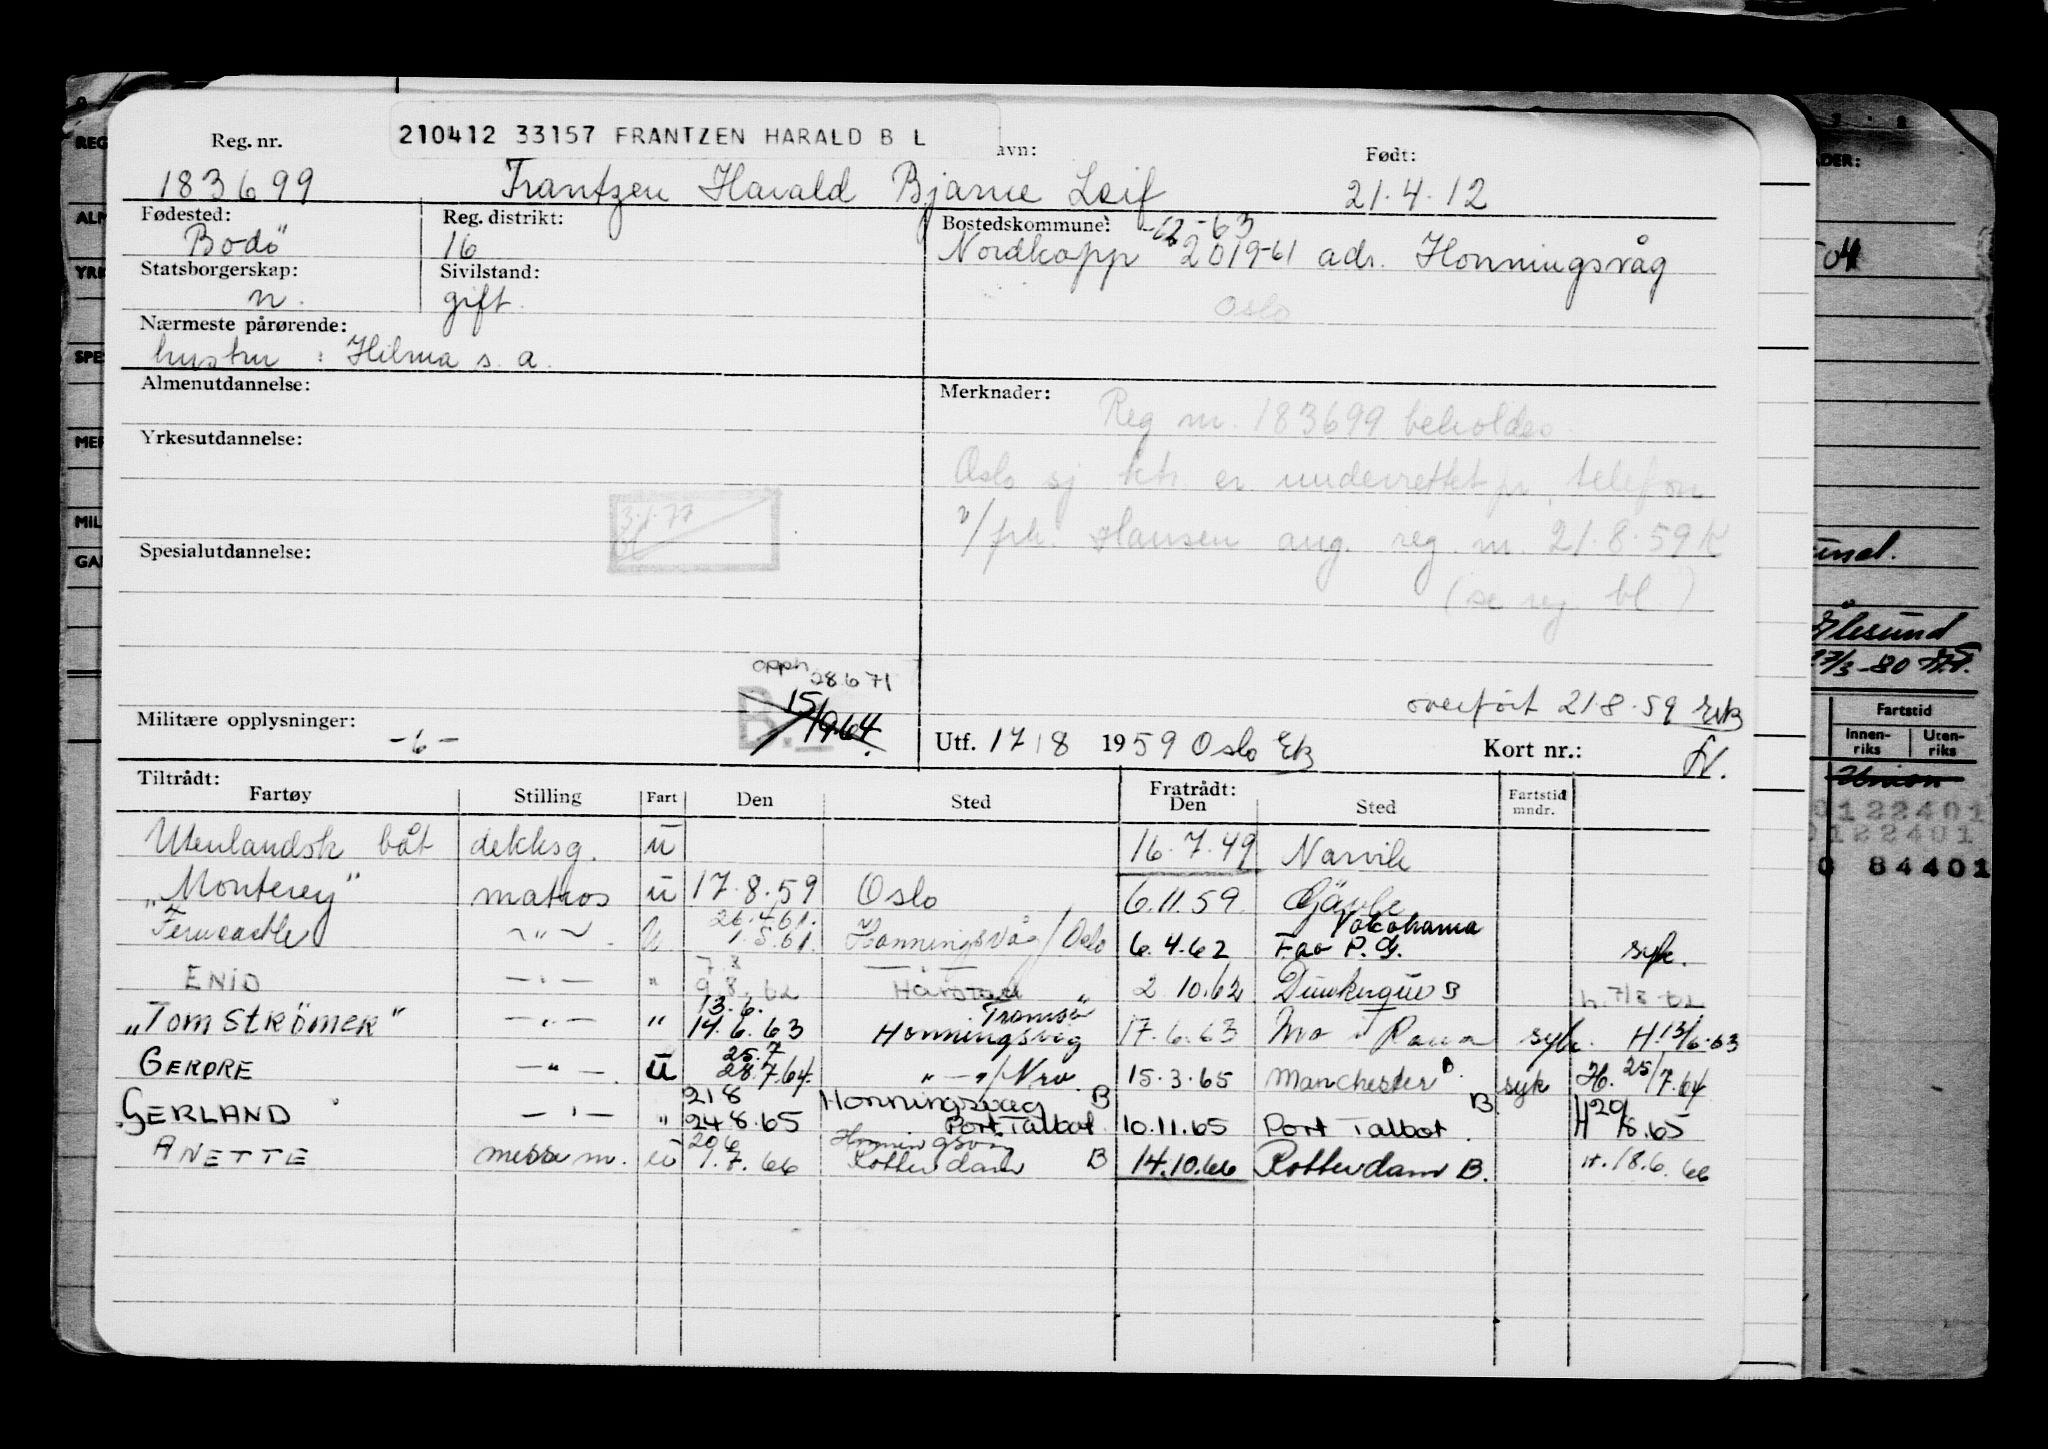 210412 33157 FRANTZEN HARALD B L
Reg. nr. avn: Født:
183699 Frantzen Harald Bjarne Leif 21.4.12
Fødested: Reg. distrikt: Bostedskommune: -62-63
Bodö 16 Nordkapp 2019-61 adr. Honningsvåg
Statsborgerskap: Sivilstand:
n. gift. Oslo
Nærmeste pårørende:
hustru : Hilma s. a.
Almenutdannelse: Merknader:
Reg nr. 183699 beholdes
Yrkesutdannelse:
Oslo sj ktr. er underrettet pr. telefon
3.1.77
v/frk. Hansen ang. reg. nr. 21.8.59 K
Spesialutdannelse:
(se reg. bl)
opph 28671
B. 15/1964. overført 21.8.59
Militære opplysninger: -6-
Utf. 17/8 1959 Oslo Kort nr.:
Tiltrådt: Fratrådt:
Fartøy Stilling Fart Den Sted Den Sted Fartstid mndr.
Utenlandsk båt dekksg. u 16.7.49 Narvik
"Monterey" matros u 17.8.59 Oslo 6.11.59. Gävle
Ferncastle -"- u 26.4.61. 1.5.61. Honningsvåg/Oslo 6.4.62 Yokohama Fao P.G. syk.
ENID -"- " 7.8 9.8.62 Harstad 2.10.62 Dunkerque B h. 7/8 62
"TOM STRÖMER" -"- " 13.6. 14.6.63 Tromsø Honningsvåg 17.6.63 Mo i Rana syk. H. 13/6.63
GERDRE -"- u 25.7 28.7.64. "-"/Nrv. 15.3.65 Manchester B. syk H. 25/7.64
GERLAND -"- " 218 248.65 Honningsvåg B Port Talbot 10.11.65 Port Talbot. B. H 20/8.65
ANETTE messem. u 20.6 1.7.66 Honningsvåg Rotterdam B 14.10.66 Rotterdam B. H. 18.6.66
REG
ALM
YRK
SPE
MER
MIL
GA
DER:
und.
Ålesund
17/3-80
Fartstid
Innen- Uten-
riks riks
Union
0122401
0122401
0 84401